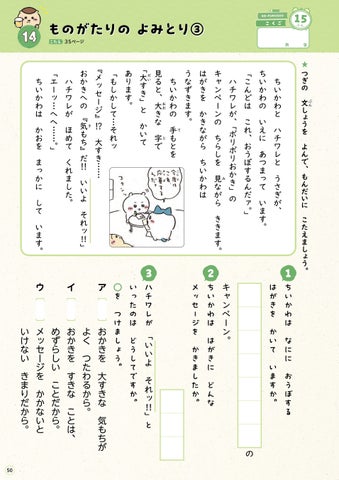 14
ものがたりの よみとり③
35ページ
15
こくご
月 日
★つぎの 文しょうを よんで、もんだいに こたえましょう。
ちいかわと ハチワレと うさぎが、
ちいかわの いえに あつまって います。
「こんどは これ、おうぼするんだァ。」
ハチワレが、「ポリポリおかき」の
キャンペーンの ちらしを 見ながら ききます。
はがきを かきながら ちいかわは
うなずきます。
ちいかわの 手もとを
見ると、大きな 字で
「大すき」と かいて
あります。
「もしかして…それッ
『メッセージ』!? 大すき……
おかきへの 『気もち』だ!! いいよ それッ!!」
ハチワレが ほめて くれました。
「エーッ…へへ……。」
ちいかわは かおを まっかに して います。
1
ちいかわは なにに おうぼする
はがきを かいて いますか。
の
キャンペーン。
2
ちいかわは はがきに どんな
メッセージを かきましたか。
3
ハチワレが 「いいよ それッ!!」と
いったのは どうしてですか。
○を つけましょう。
ア おかきを 大すきな 気もちが
よく つたわるから。
イ おかきを すきな ことは、
めずらしい ことだから。
ウ メッセージを かかないと
いけない きまりだから。
50